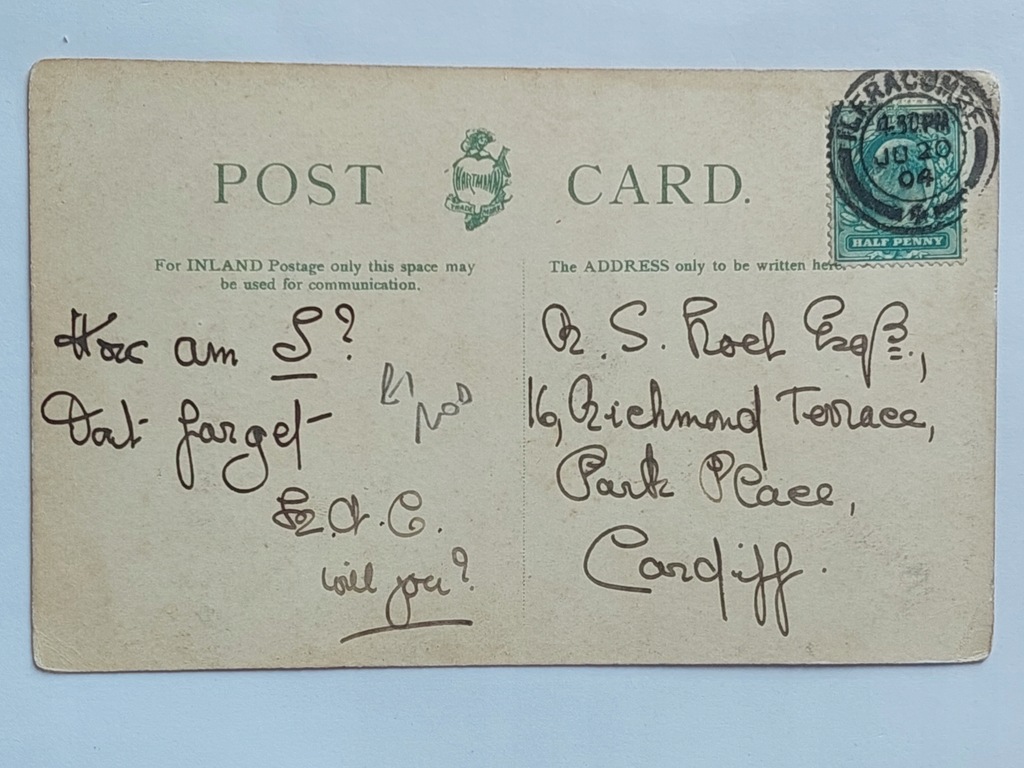 POST CARD.
HARTMANN
TRADE MARK
ILFRACOMBE
4.30PM
JU 20
04
HALF PENNY
For INLAND Postage only this space may
be used for communication.
The ADDRESS only to be written here.
How am I?
Dont forget
E.A.C.
will you?
R. S. Noel Esqre.,
16, Richmond Terrace,
Park Place,
Cardiff.